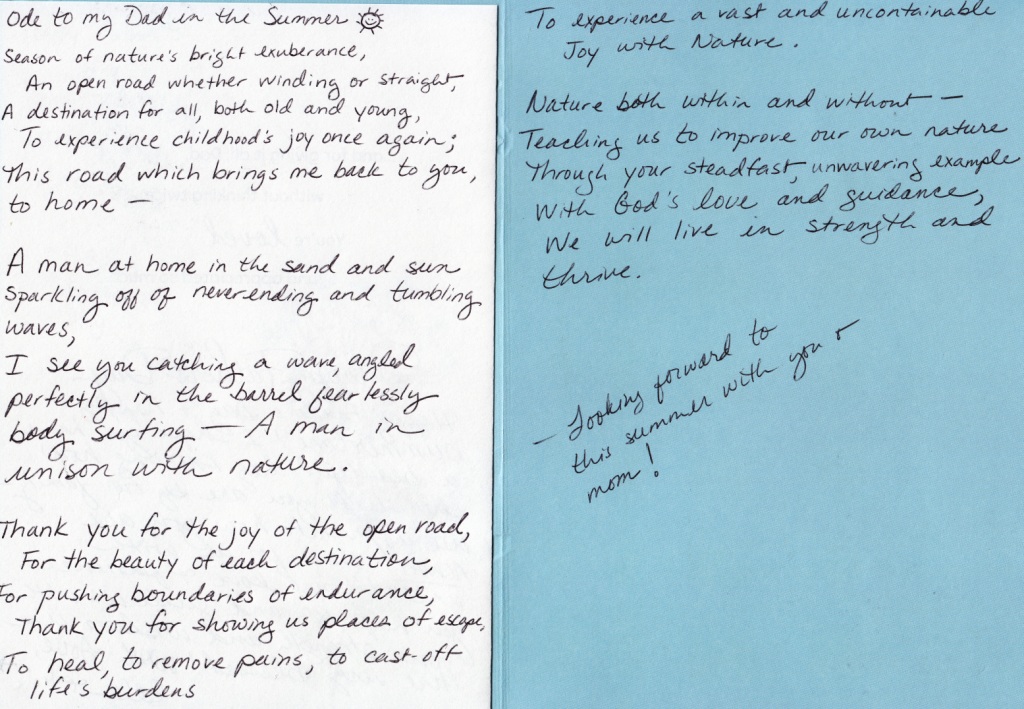 Ode to my Dad in the Summer
Season of nature's bright exuberance,
An open road whether winding or straight,
A destination for all, both old and young,
To experience childhood's joy once again;
This road which brings me back to you,
to home —
A man at home in the sand and sun
Sparkling off of neverending and tumbling
waves,
I see you catching a wave, angled
perfectly in the barrel fearlessly
body surfing — A man in
unison with nature.
Thank you for the joy of the open road,
For the beauty of each destination,
For pushing boundaries of endurance,
Thank you for showing us places of escape,
To heal, to remove pains, to cast-off
life's burdens
To experience a vast and uncontainable
Joy with Nature.
Nature both within and without —
Teaching us to improve our own nature
Through your steadfast, unwavering example
With God's love and guidance,
We will live in strength and
thrive.
— Looking forward to
this summer with you &
mom!